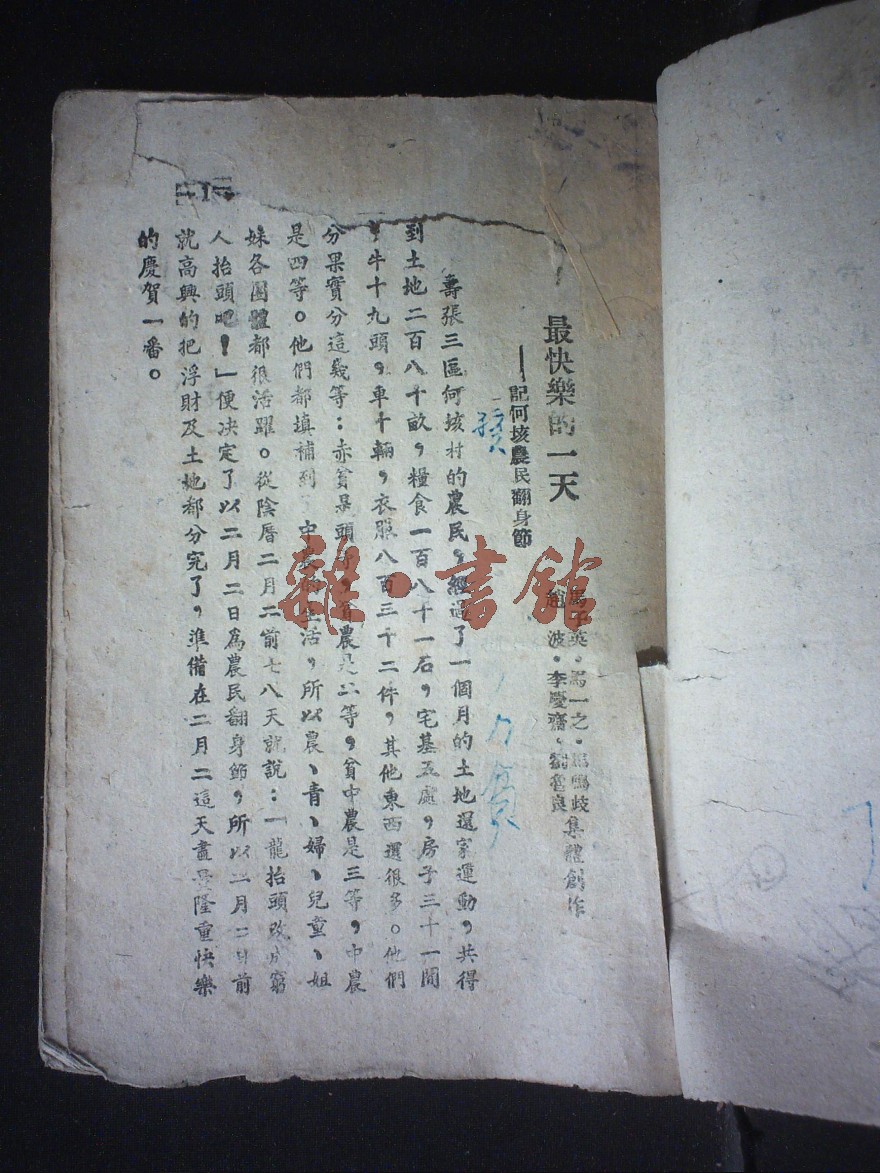 最快樂的一天
——記何垓農民翻身節
馬子英・馬一之・馬鳴歧
趙波・李慶齋・劉魯良
集體創作
壽張三區何垓村的農民，經過了一個月的土地還家運動，共得
到土地二百八十畝，糧食一百八十一石，宅基五處，房子三十一間
，牛十九頭，車十輛，衣服八百三十二件，其他東西還很多。他們
分果實分這幾等：赤貧是頭等，貧農是二等，貧中農是三等，中農
是四等。他們都填補到了中農的生活，所以農、青、婦、兒童、姐
妹各團體都很活躍。從陰曆二月二前七八天就說：「龍抬頭改成窮
人抬頭吧！」便決定了以二月二日為農民翻身節，所以二月二日前
就高興的把浮財及土地都分完了，準備在二月二這天盡量隆重快樂
的慶賀一番。
雜・書館